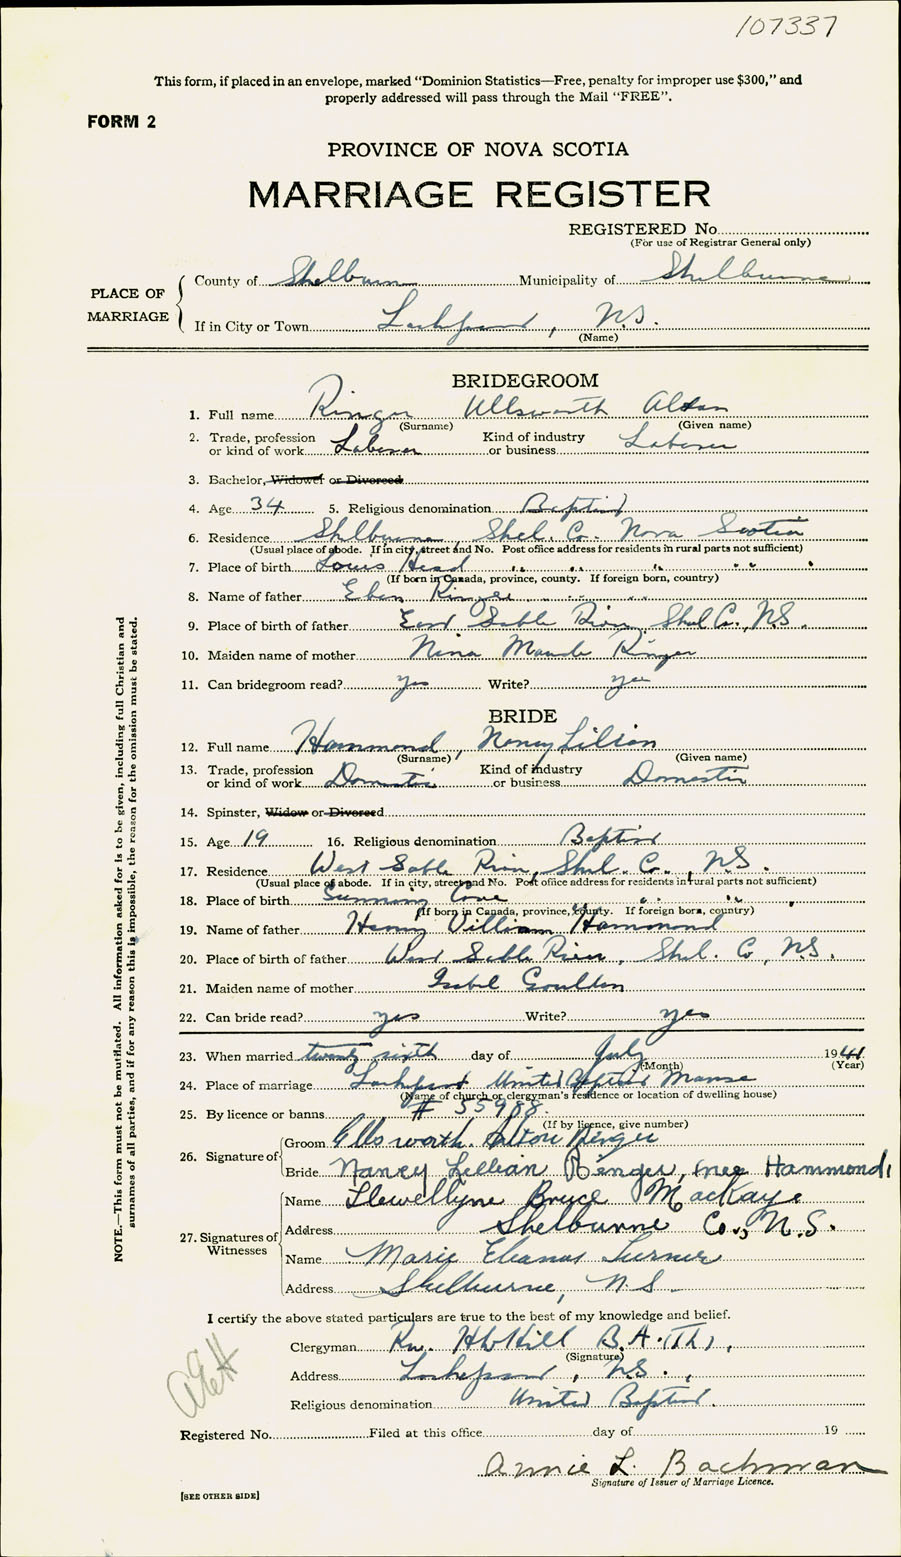 107337
This form, if placed in an envelope, marked "Dominion Statistics—Free, penalty for improper use $300," and
properly addressed will pass through the Mail "FREE".
FORM 2
PROVINCE OF NOVA SCOTIA
MARRIAGE REGISTER
REGISTERED No
(For use of Registrar General only)
PLACE OF MARRIAGE
County of Shelburn Municipality of Shelburne
If in City or Town Lockeport, N.S.
(Name)
BRIDEGROOM
1. Full name Ringer Ellsworth Alton
(Surname) (Given name)
2. Trade, profession or kind of work Laborer Kind of industry or business Laborer
3. Bachelor, Widower or Divorced
4. Age 34 5. Religious denomination Baptist
6. Residence Shelburne, Shel. Co. Nova Scotia
(Usual place of abode. If in city, street and No. Post office address for residents in rural parts not sufficient)
7. Place of birth Louis Head " " " " "
(If born in Canada, province, county. If foreign born, country)
8. Name of father Eben Ringer
9. Place of birth of father East Sable River, Shel Co., N.S.
10. Maiden name of mother Nina Maude Ringer
11. Can bridegroom read? yes Write? yes
BRIDE
12. Full name Hammond, Nancy Lilian
(Surname) (Given name)
13. Trade, profession or kind of work Domestic Kind of industry or business Domestic
14. Spinster, Widow or Divorced
15. Age 19 16. Religious denomination Baptist
17. Residence West Sable River, Shel. Co., N.S.
(Usual place of abode. If in city, street and No. Post office address for residents in rural parts not sufficient)
18. Place of birth Cove " " "
(If born in Canada, province, county. If foreign born, country)
19. Name of father Henry William Hammond
20. Place of birth of father West Sable River, Shel. Co, N.S.
21. Maiden name of mother Isabel Goulden
22. Can bride read? yes Write? yes
23. When married twenty sixth day of July 1941
(Month) (Year)
24. Place of marriage Lockeport United Baptist Manse
(Name of church or clergyman's residence or location of dwelling house)
25. By licence or banns # 55988.
(If by licence, give number)
26. Signature of
Groom Ellsworth Alton Ringer
Bride Nancy Lillian Ringer, (nee Hammond)
27. Signatures of Witnesses
Name Llewellyne Bruce MacKaye
Address Shelburne Co., N.S.
Name Marie Eleanor Turner
Address Shelburne, N.S.
I certify the above stated particulars are true to the best of my knowledge and belief.
Clergyman Rev. H W Hill B.A. (Th),
(Signature)
Address Lockeport, N.S.,
Religious denomination United Baptist.
Registered No. Filed at this office day of 19
Annie L. Bachman
Signature of Issuer of Marriage Licence.
[SEE OTHER SIDE]
NOTE.—This form must not be mutilated. All information asked for is to be given, including full Christian and
surnames of all parties, and if for any reason this is impossible, the reason for the omission must be stated.